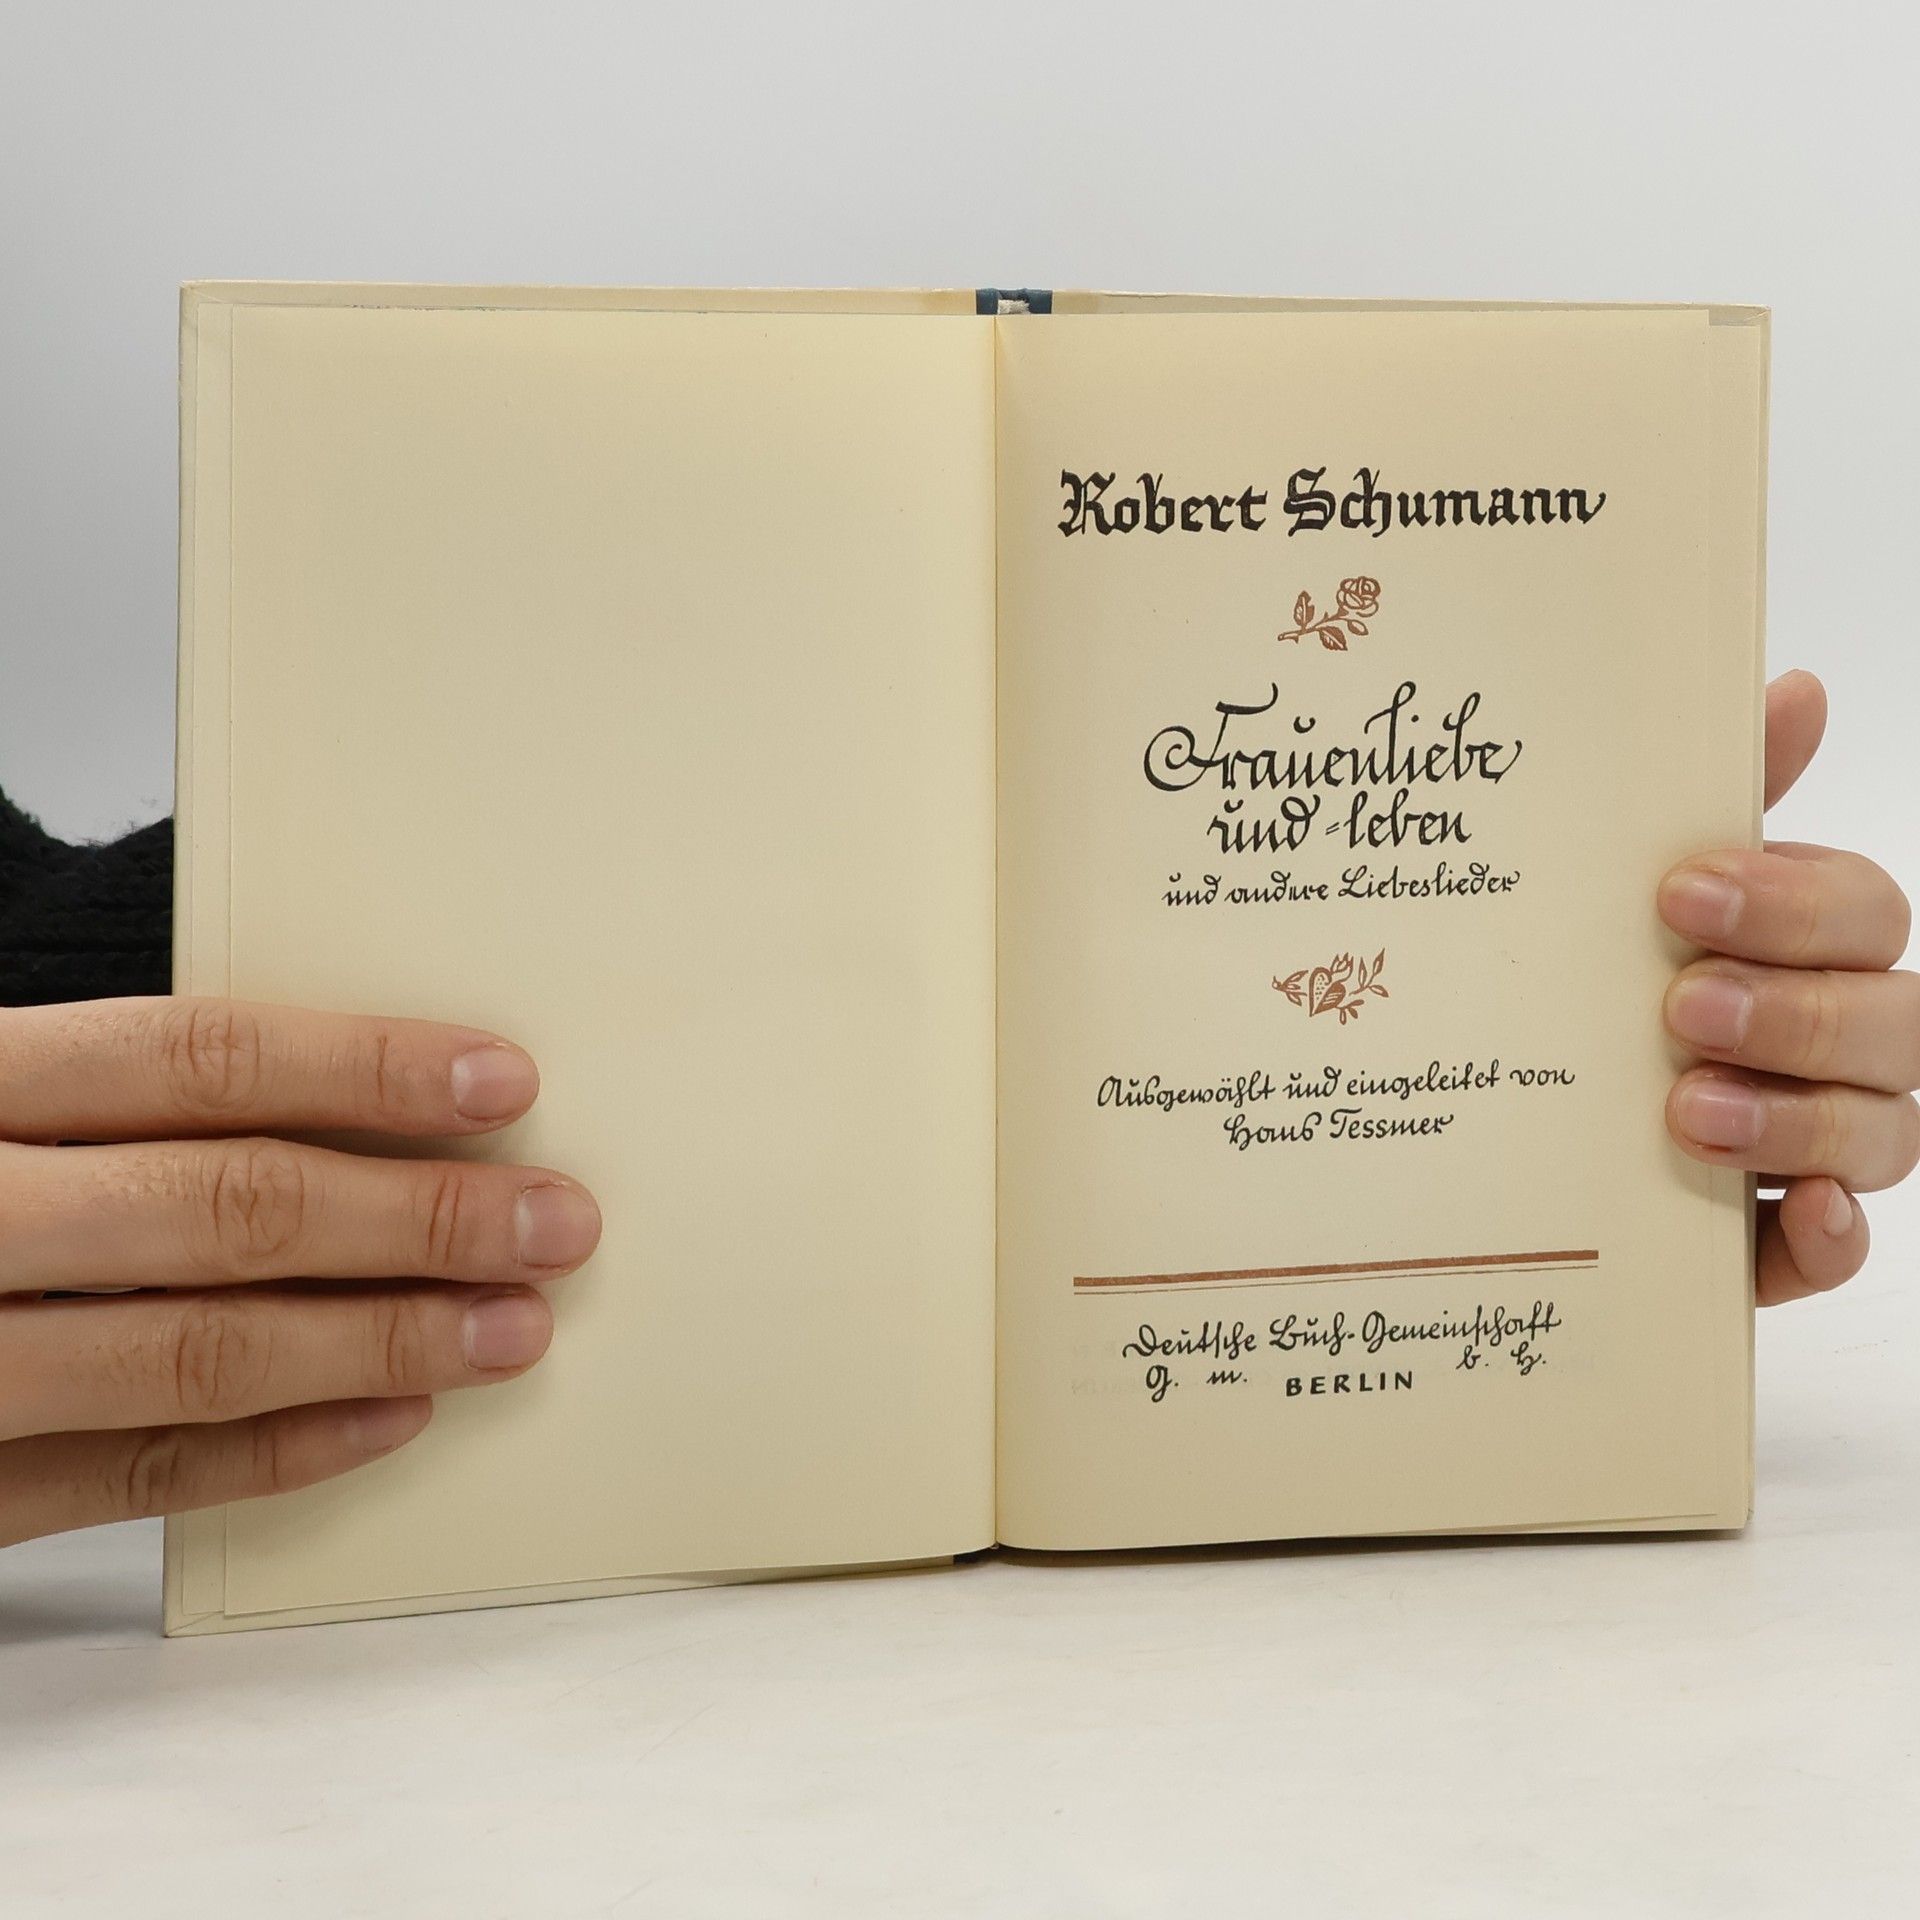 Robert Schumann
Frauenliebe
und =leben
und andere Liebeslieder
Ausgewählt und eingeleitet von
Hans Tessmer
Deutsche Buch-Gemeinschaft
G. m. b. H.
BERLIN